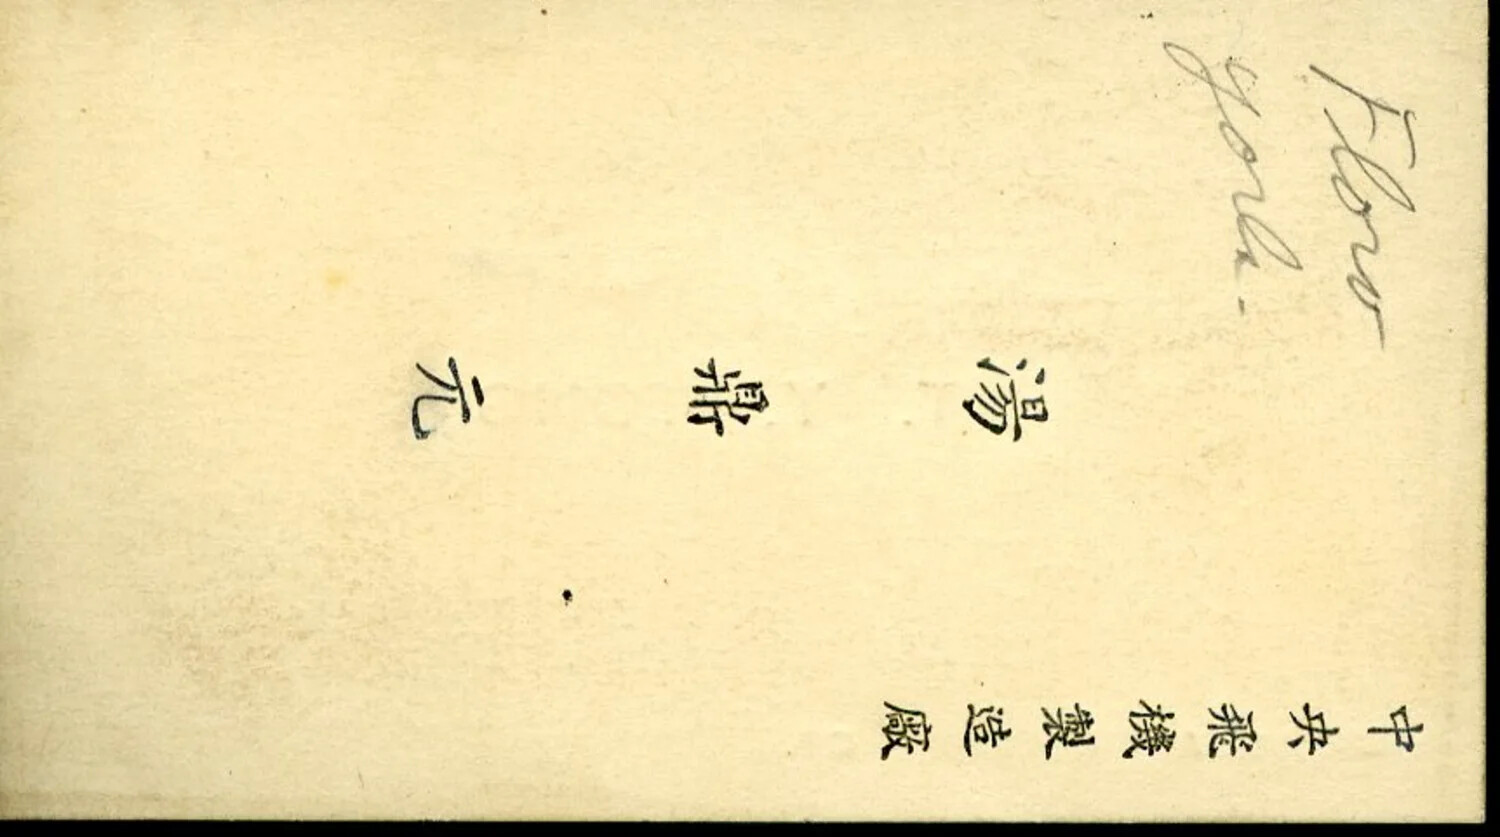 中央飛機製造廠
湯鼎元
Floro